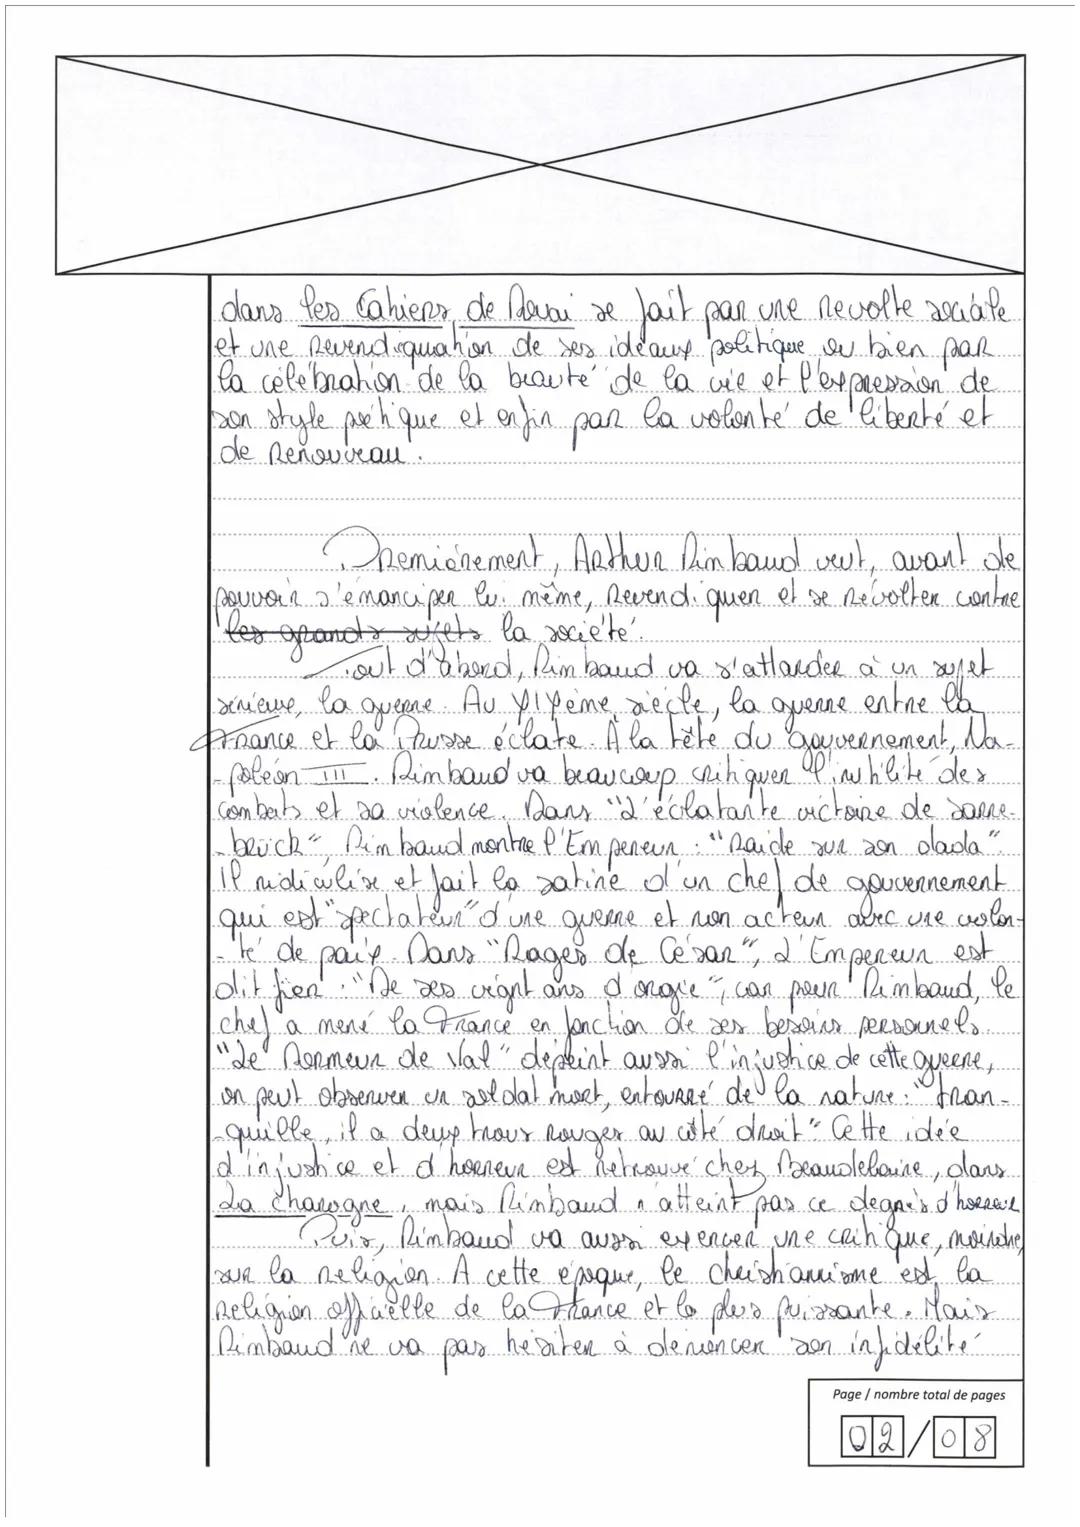 dans les Cahiers de Douai se fait par une revolte sociale
et une revendiquation de ses idéaux politique ou bien par
la célébration de la beauté de la vie et l'expression de
son style poétique et enfin par la volonté de liberté et
de renouveau.
Premièrement, Arthur Rimbaud veut, avant de
pouvoir s'émanciper lui même, revendiquer et se révolter contre
les grands sujets la société.
Tout d'abord, Rimbaud va s'attarder à un sujet
sérieux, la guerre. Au XIXème siècle, la guerre entre la
France et la Prusse éclate. A la tête du gouvernement, Na-
-poléon III. Rimbaud va beaucoup critiquer l'inutilité des
combats et sa violence. Dans "L'éclatante victoire de Sarre-
-brück", Rimbaud montre l'Empereur : "Raide sur son dada".
Il ridiculise et fait la satire d'un chef de gouvernement
qui est "spectateur" d'une guerre et non acteur avec une volon-
-té de paix. Dans "Rages de César", L'Empereur est
dit fier : "De ses vignt ans d'orgie", car pour Rimbaud, le
chef a mené la France en fonction de ses besoins personnels.
"Le Dormeur de Val" dépeint aussi l'injustice de cette guerre,
on peut observer un soldat mort, entourré de la nature : "tran-
-quille, il a deux trous rouges au côté droit". Cette idée
d'injustice et d'horreur est retrouvé chez Beaudelaire, dans
La Charogne, mais Rimbaud n'atteint pas ce degrés d'horreur
Puis, Rimbaud va aussi exercer une critique, moindre,
sur la religion. A cette époque, le christiannisme est la
religion officielle de la France et la plus puissante. Mais
Rimbaud ne va pas hésiter à dénoncer son infidélité
Page / nombre total de pages
02/08